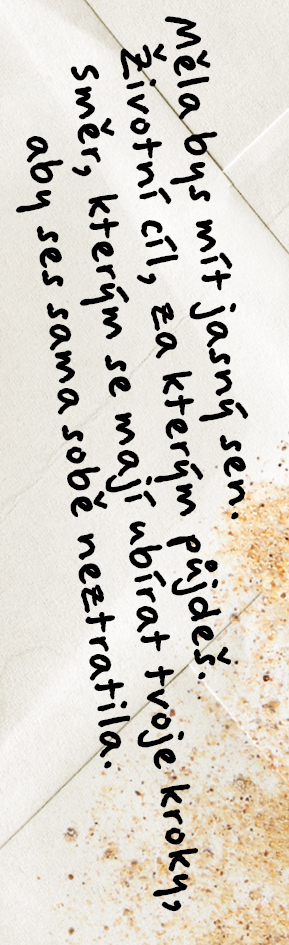 Měla bys mít jasný sen.
Životní cíl, za kterým půjdeš.
směr, kterým se mají ubírat tvoje kroky,
aby ses sama sobě neztratila.